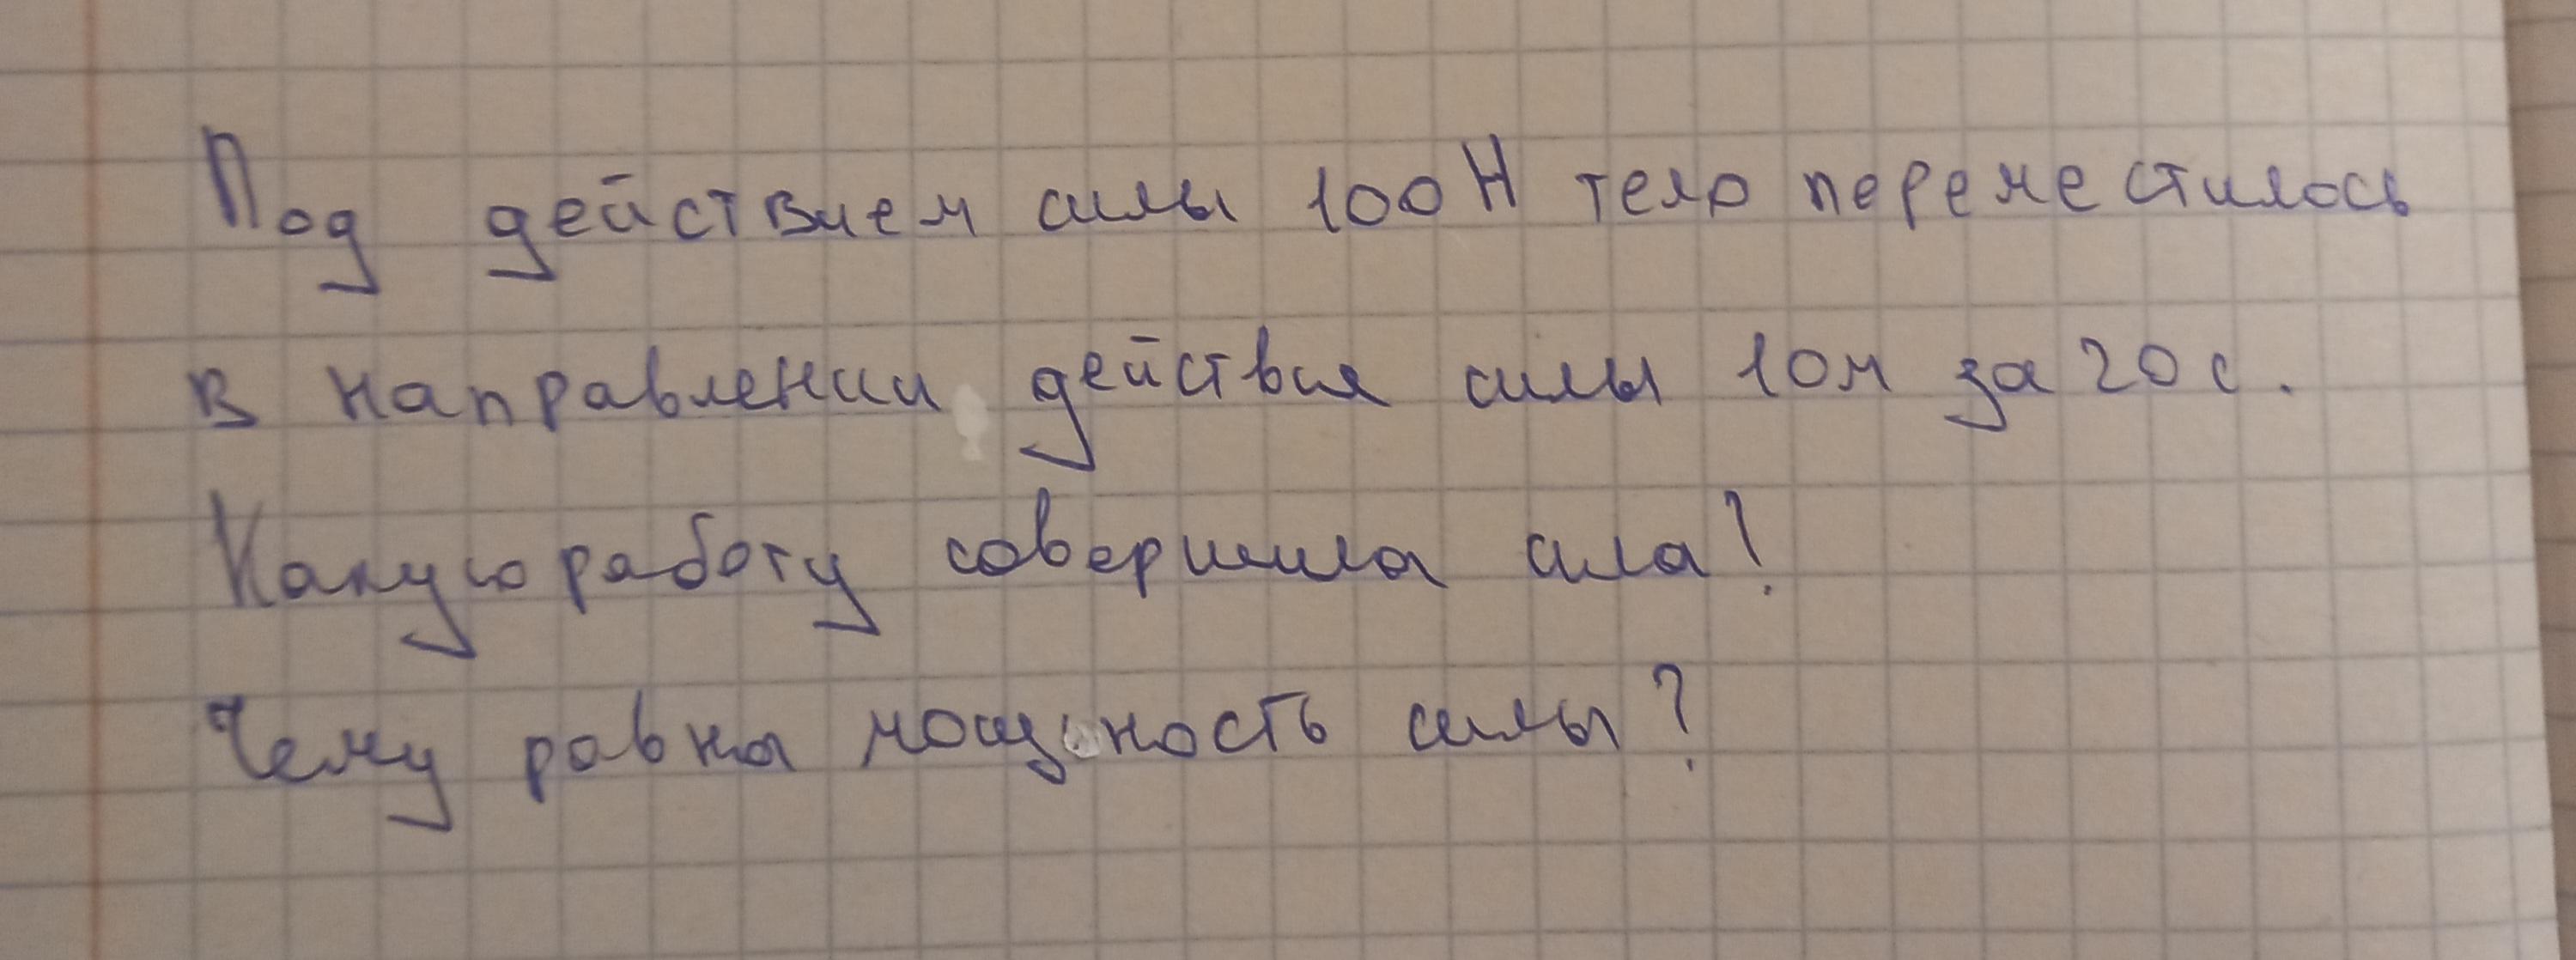 Под действием силы 100Н тело переместилось
в направлении действия силы 10м за 20 с.
Какую работу совершила сила?
Чему равна мощность силы?